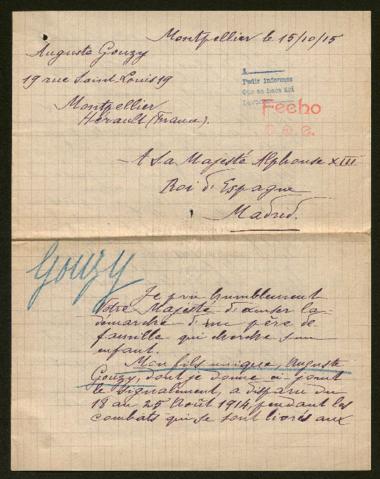 Montpellier le 15/10/15
Auguste Gouzy
19 rue Saint Louis 19
Montpellier
Hérault (France).
A
Pedir informes
Que se hace así
Fecho
A Sa Majesté Alphonse XIII
Roi d'Espagne
Madrid.
Gouzy
Je prie humblement
Votre Majesté d'excuser la
démarche d'un père de
famille qui cherche son
enfant.
Mon fils unique, Auguste
Gouzy, dont je donne ci-joint
le signalement, a disparu du
18 au 25 Août 1914, pendant les
combats qui se sont livrés aux